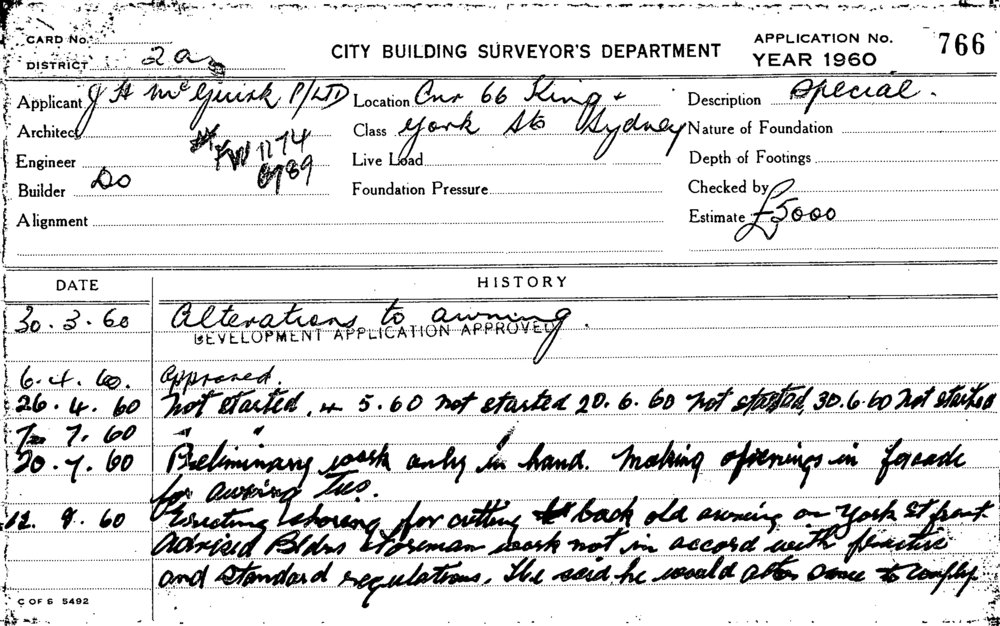 CARD No.
DISTRICT 2a
CITY BUILDING SURVEYOR'S DEPARTMENT
APPLICATION No. 766
YEAR 1960
Applicant J H McGuirk P/LTD
Location Cnr 66 King +
Description Special.
Architect
Class York Sts Sydney
Nature of Foundation
Engineer
FW 1174
Live Load
Depth of Footings
Builder Do
6789
Foundation Pressure
Checked by
Alignment
Estimate £5000
DATE HISTORY
30.3.60 Alterations to awning.
DEVELOPMENT APPLICATION APPROVED
6.4.60. Approved.
26.4.60 Not started, 4 5.60 not started 20.6.60 Not started, 30.6.60 Not started
7.60 " "
20.7.60 Preliminary work only in hand. Making openings in facade
for awning ties.
12.8.60 Erecting shoring for cutting back old awning on York St front
Advised Bldrs foreman work not in accord with
and standard regulations. He said he would at once to comply.
C OF S 5492